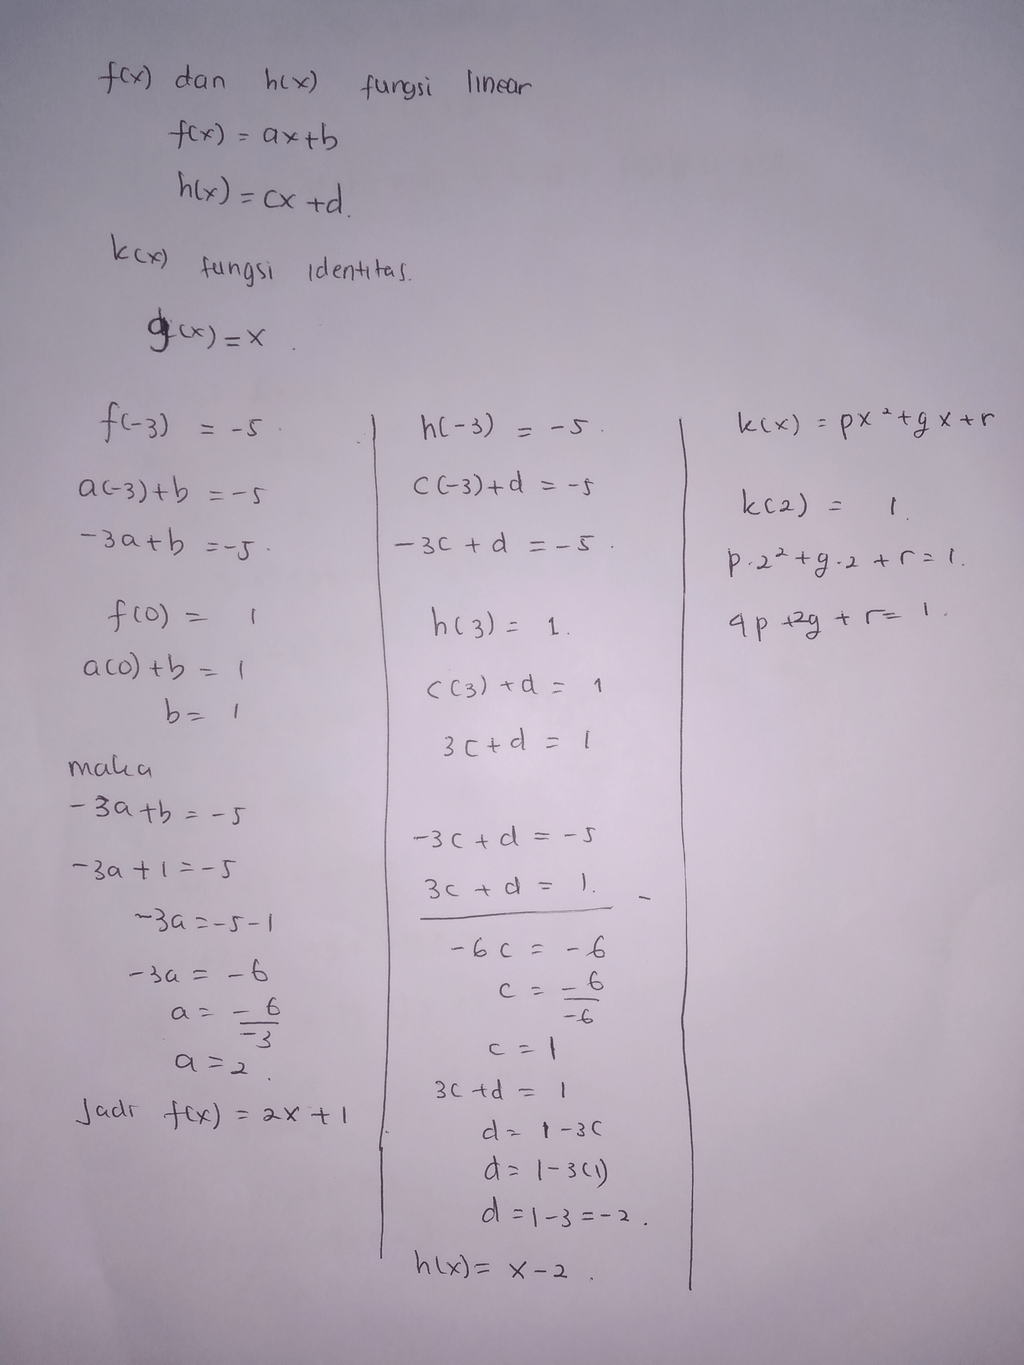 f(x) dan h(x) fungsi linear
f(x) = ax+b
h(x) = cx +d.
k(x) fungsi identitas.
g(x) = x .
f(-3) = -5 .
a(-3)+b = -5
-3a+b = -5 .
f(0) = 1
a(0)+b = 1
b = 1
maka
-3a+b = -5
-3a+1 = -5
-3a = -5-1
-3a = -6
a = -6/-3
a = 2 .
Jadi f(x) = 2x+1
h(-3) = -5 .
c(-3)+d = -5
-3c + d = -5 .
h(3) = 1.
c(3) +d = 1
3c+d = 1
-3c + d = -5
3c + d = 1. -
-6c = -6
c = -6/-6
c = 1
3c +d = 1
d = 1-3c
d = 1-3(1)
d = 1-3 = -2 .
h(x) = x-2 .
k(x) = px²+gx+r
k(2) = 1.
p.2²+g.2 + r = 1.
4p +2g + r = 1.